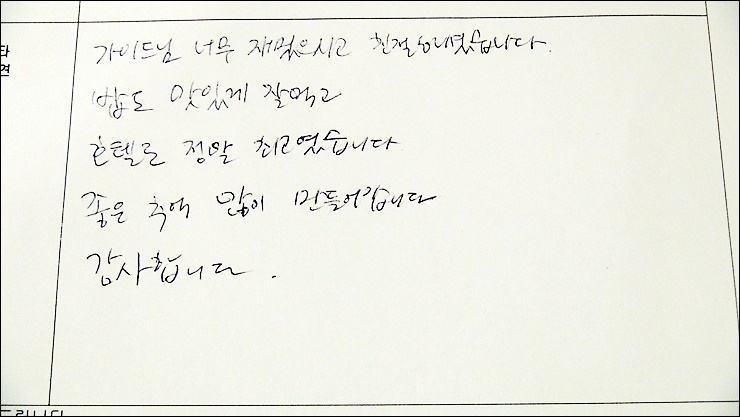 가이드님 너무 재밌으시고 친절하셨습니다.
밥도 맛있게 잘먹고
호텔도 정말 최고였습니다
좋은 추억 많이 만들어갑니다
감사합니다.
타
견
드립니다